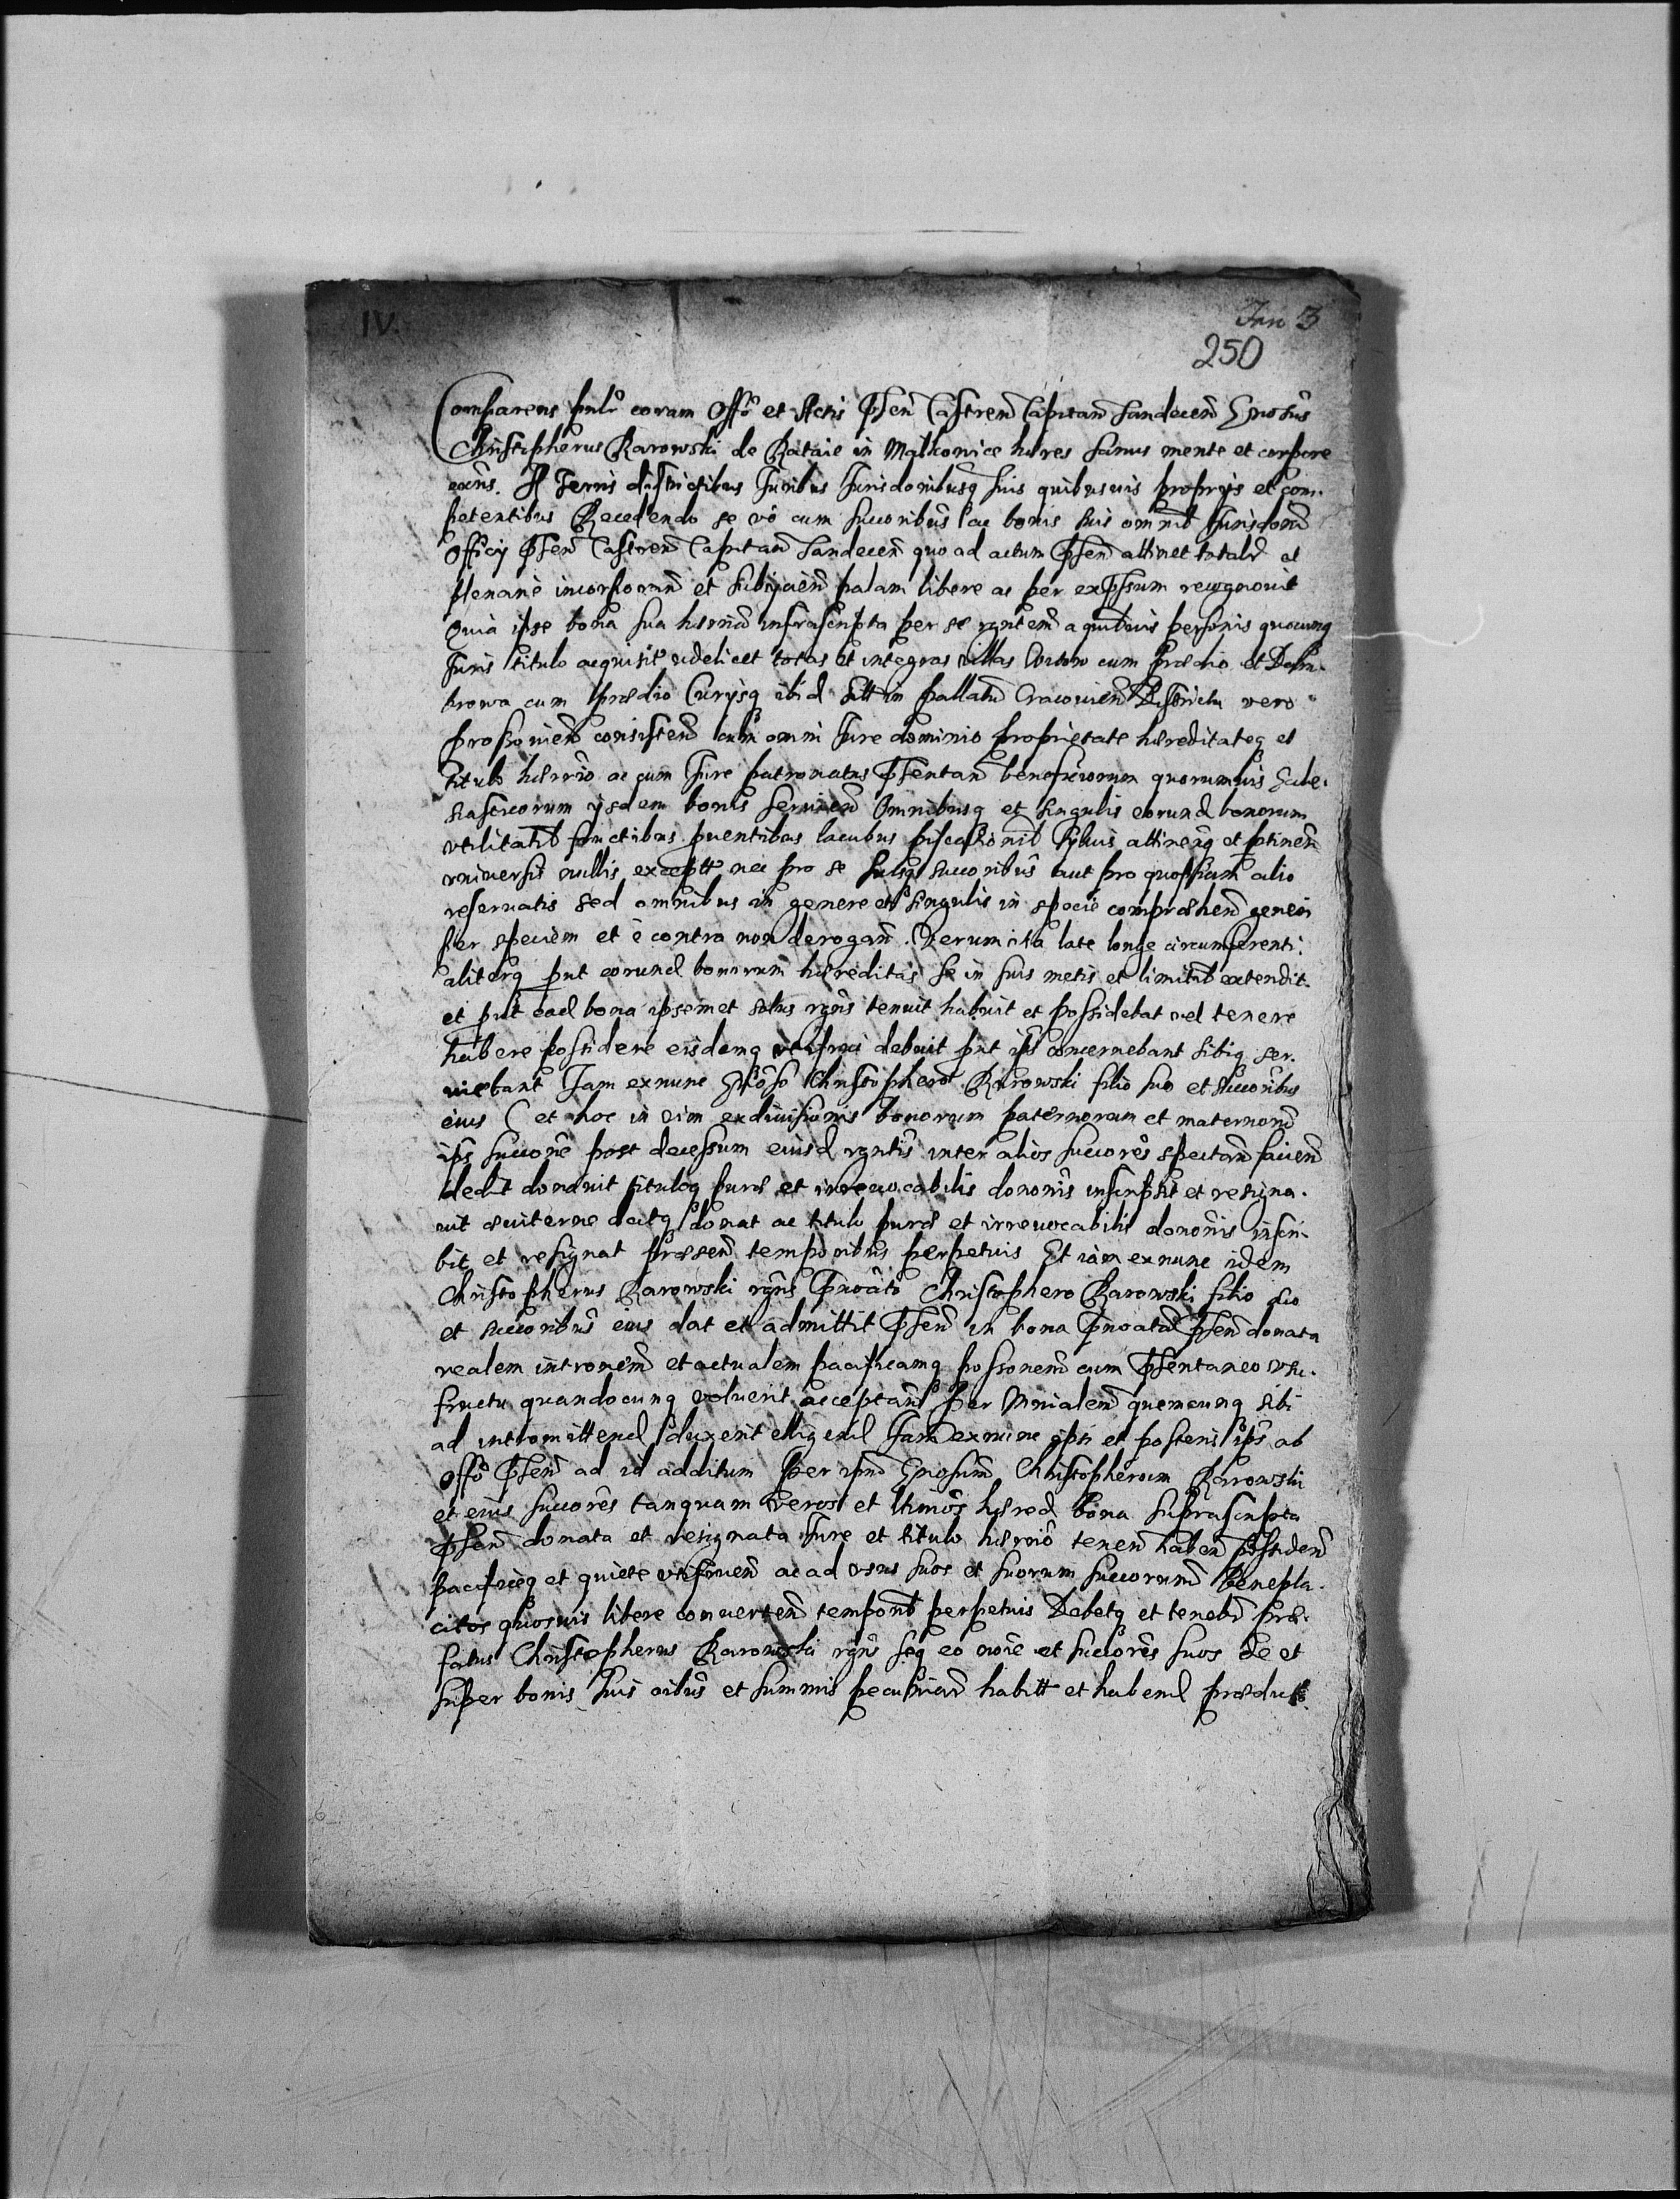 IV.
Jan 3
250
Comparens pnlr coram Offo et Actis Psen Castren Capitan Sandecen Gnosus
Christopherus Rarowski de Rataie in Malkowice hæres sanus mente et corpore
exns. A Terris districtibus Juribus Jurisdonibusq suis quibusuis proprijs et com-
petentibus Recedendo se vo cum succoribus ac bonis suis omnib Jurisdoni
Officij Psen Castren Capitan Sandecen quo ad actum Psen attinet totalr ac
plenarie incorporan et subijcien palam libere ac per expssum recognouit
Quia ipse bona sua hærria infrascripta per se rgntem a quibuis personis quocunq
Juris titulo acquisit videlicet totas et integras villas cum prædio et Dom-
browa cum prædio Curijsq ibid sitt in Pallatu Cracouien Districtu vero
Proszouien consisten cum omni Jure dominio proprietate hæreditateq et
titulo hærrio ac cum Jure patronatus Psentan beneficiorum quorumuis Eccle-
siasticorum ijsdem bonis seruien Omnibusq et singulis eorund bonorum
vtilitatib fructibus puentibus lacubus piscationib syluis attinenq et ptinen
vniuersis nullis exceptt nec pro se suisq succoribus aut pro quopiam alio
reseruatis sed omnibus in genere et singulis in specie compræhen genere
per speciem et è contra non derogan. Verum ita late longe circumferenti-
aliterq put eorund bonorum hæreditas se in suis metis et limitib extendit.
et put ead bona ipsemet solus rgns tenuit habuit et possidebat vel tenere
habere possidere eisdemq vtifrui debuit put ips concernebant sibiq ser-
uiebant Jam exnunc Gnoso Christophero Rarowski filio suo et succoribus
eius (et hoc in vim exdiuisionis bonorum paternorum et maternoru
ips succone post decessum eiusd rgntis inter alios succores spectan facien
dedit donauit tituloq puræ et irreuocabilis dononis inscripsit et resigna-
uit æuiterne datq donat ac titulo puræ et irreuocabilis dononis inscri-
bit et resignat præsen temporibus perpetuis Et iam exnunc idem
Christopherus Rarowski rgns Pnoato Christophero Rarowski filio suo
et succoribus eius dat et admittit Psen in bona Pnoata Psen donata
realem intronem et actualem pacificamq possonem cum Psentaneo vsu-
fructu quandocunq voluerit acceptan per Mnialem quemcunq sibi
ad intromittend duxerit elligend Jam exnunc ipsi et posteris ips ab
Offo Psen ad id additum Per ipm Gnosum Christopherum Rarowski
et eius succores tanquam veros et ltimos hæred bona suprascripta
Psen donata et resignata Jure et titulo hærrio tenen haben possiden
pacificeq et quiete vtifruen ac ad vsus suos et suorum succorum benepla-
citos quosuis libere conuerten temporib perpetuis Debetq et tenebr præ-
fatus Christopherus Rarowski rgns seq eo noie et succores suos de et
super bonis suis oibus et summis pecuniar habitt et habend præductt